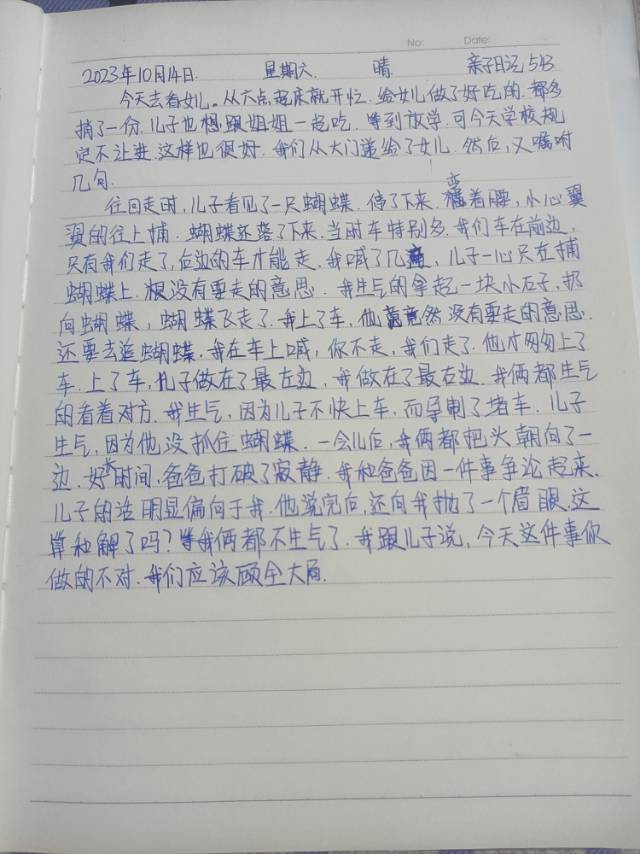 No: Date:
2023年10月14日. 星期六. 晴. 亲子日记513
今天去看女儿。从六点起床就开忙.给女儿做了好吃的.都多
捎了一份.儿子也想跟姐姐一起吃.等到放学.可今天学校规
定不让进.这样也很好.我们从大门递给了女儿.然后,又嘱咐
几句.
往回走时,儿子看见了一只蝴蝶.停了下来.弯着腰,小心翼
翼的往上捕.蝴蝶还落了下来.当时车特别多.我们车在前边,
只有我们走了,后边的车才能走.我喊了几声,儿子一心只在捕
蝴蝶上.根没有要走的意思.我生气的拿起一块小石子,扔
向蝴蝶,蝴蝶飞走了.我上了车,他竟然没有要走的意思.
还要去追蝴蝶.我在车上喊,你不走,我们走了.他才匆匆上了
车.上了车,儿子做在了最左边,我做在了最右边.我俩都生气
的看着对方.我生气,因为儿子不快上车,而导制了堵车.儿子
生气,因为他没抓住蝴蝶.一会儿后,我俩都把头朝向了一
边.好长时间,爸爸打破了寂静.我和爸爸因一件事争论起来.
儿子的话明显偏向于我.他说完后,还向我抛了一个眉眼.这
算和解了吗?我俩都不生气了.我跟儿子说,今天这件事你
做的不对.我们应该顾全大局.